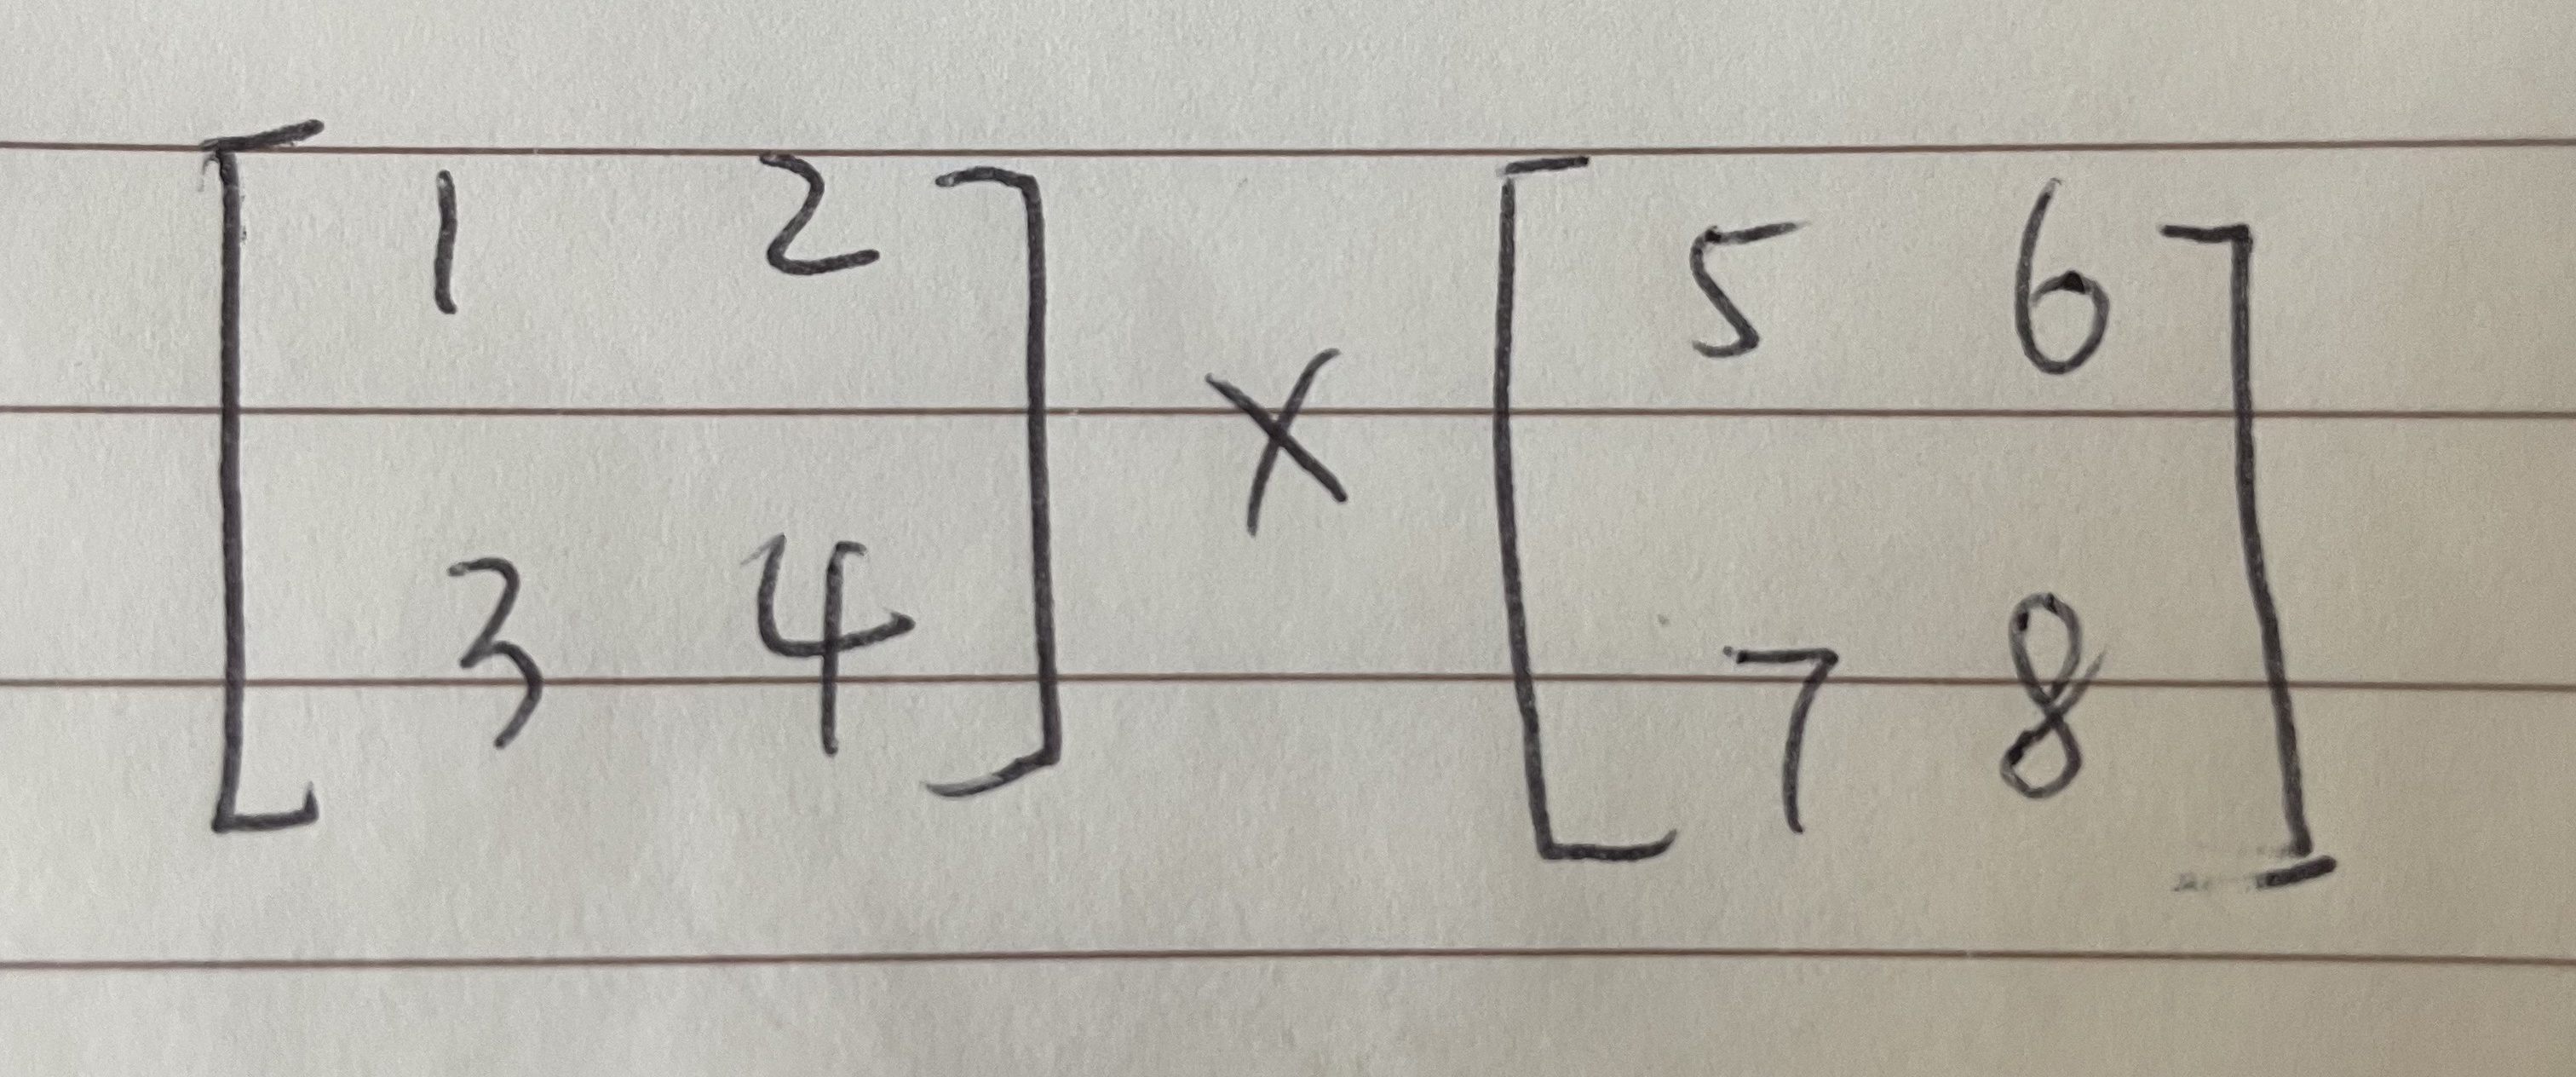 [1 2
3 4] × [5 6
7 8]